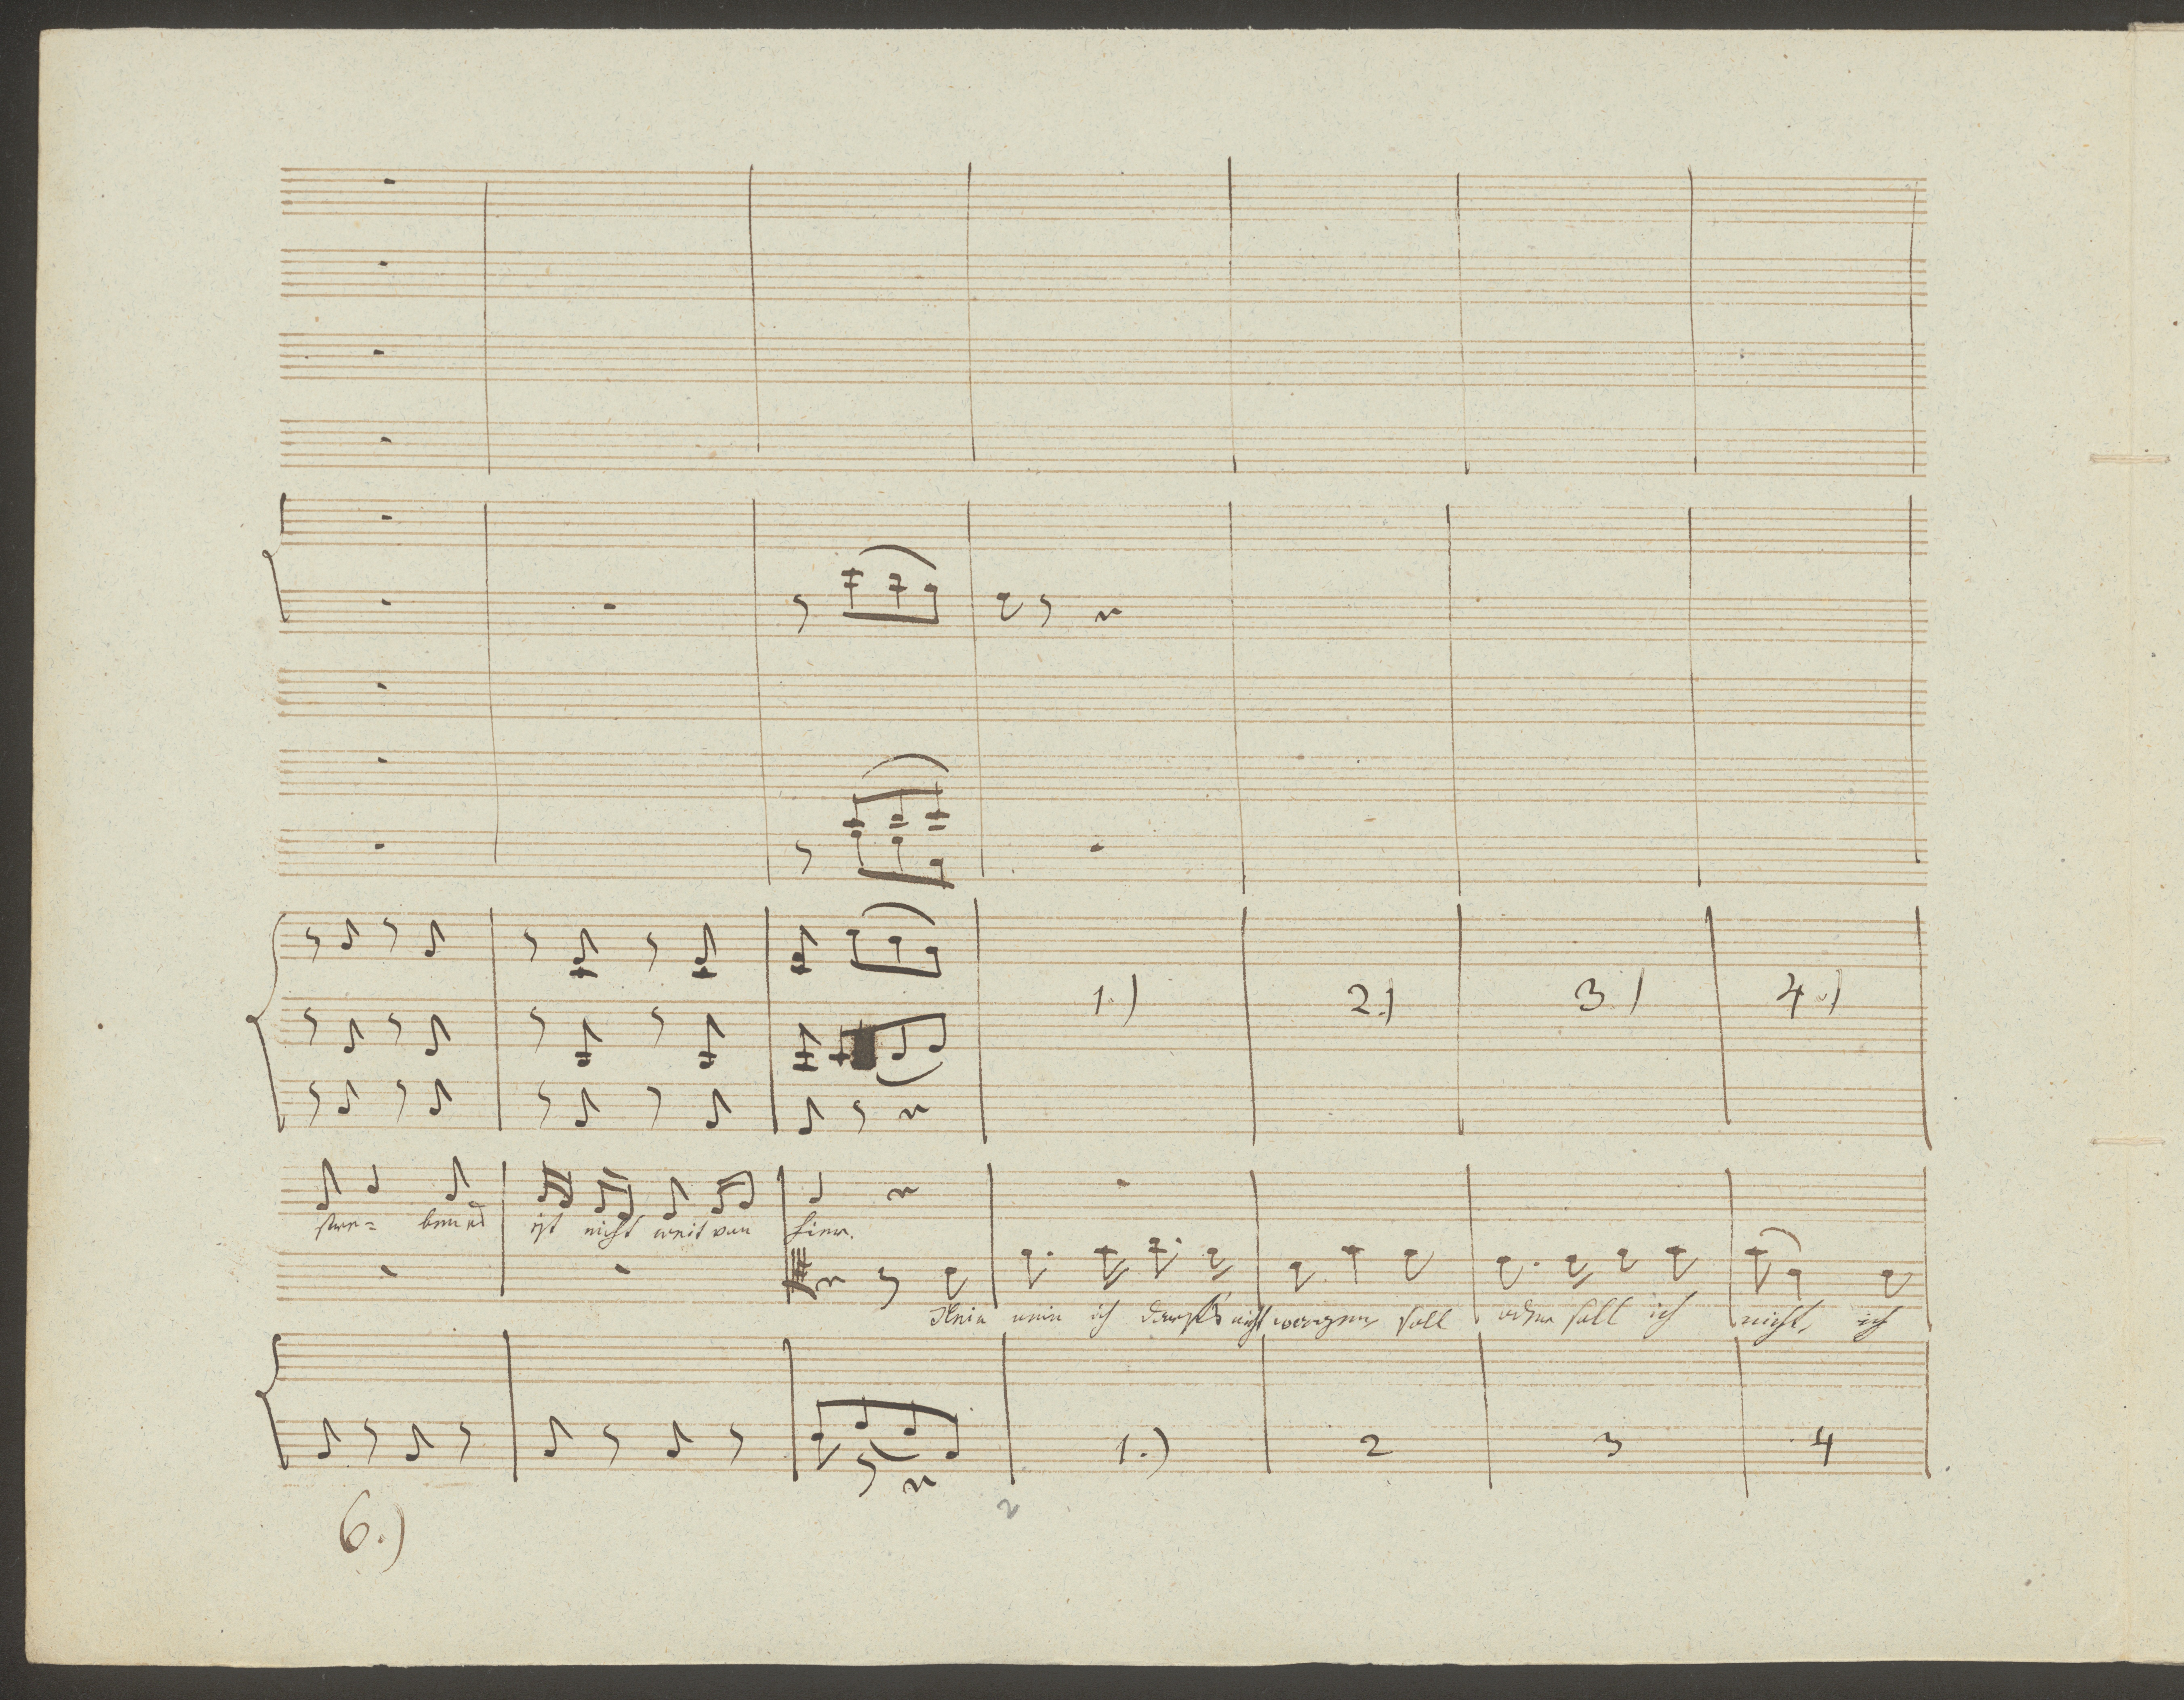 1.) 2.) 3.) 4.)
stre= ben es ist nicht weit von hier.
Nein nein ich darf's nicht wagen, soll oder soll ich nicht, ich
1.) 2 3 4
6.)
2